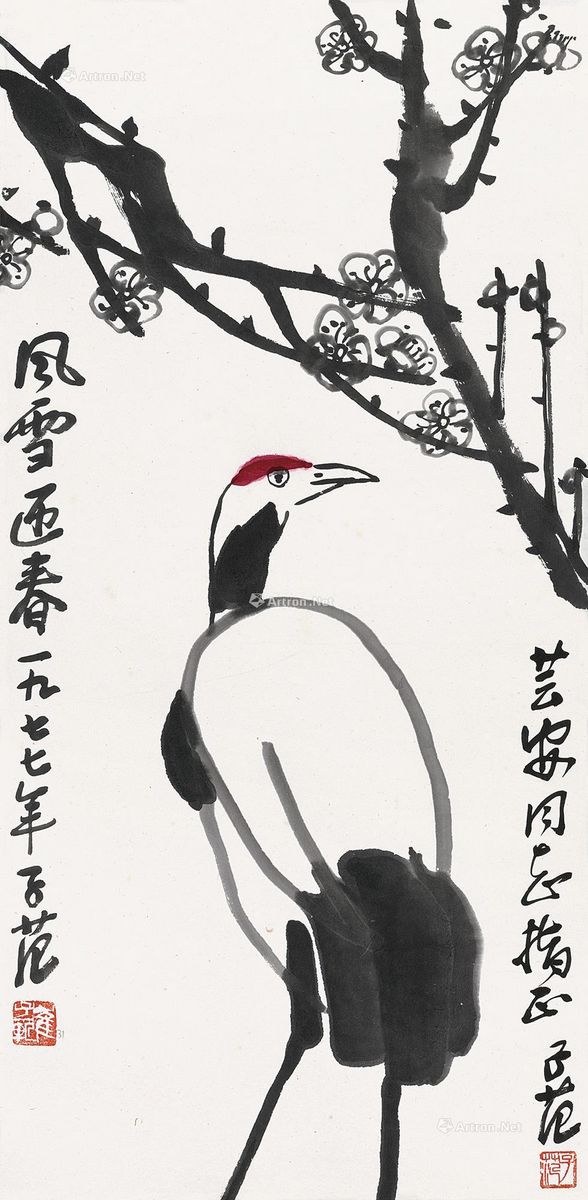 芸安同志指正 子范
风雪迎春 一九七七年 子范
Artron.Net
Artron.Net
Artron.Net
Artron.Net